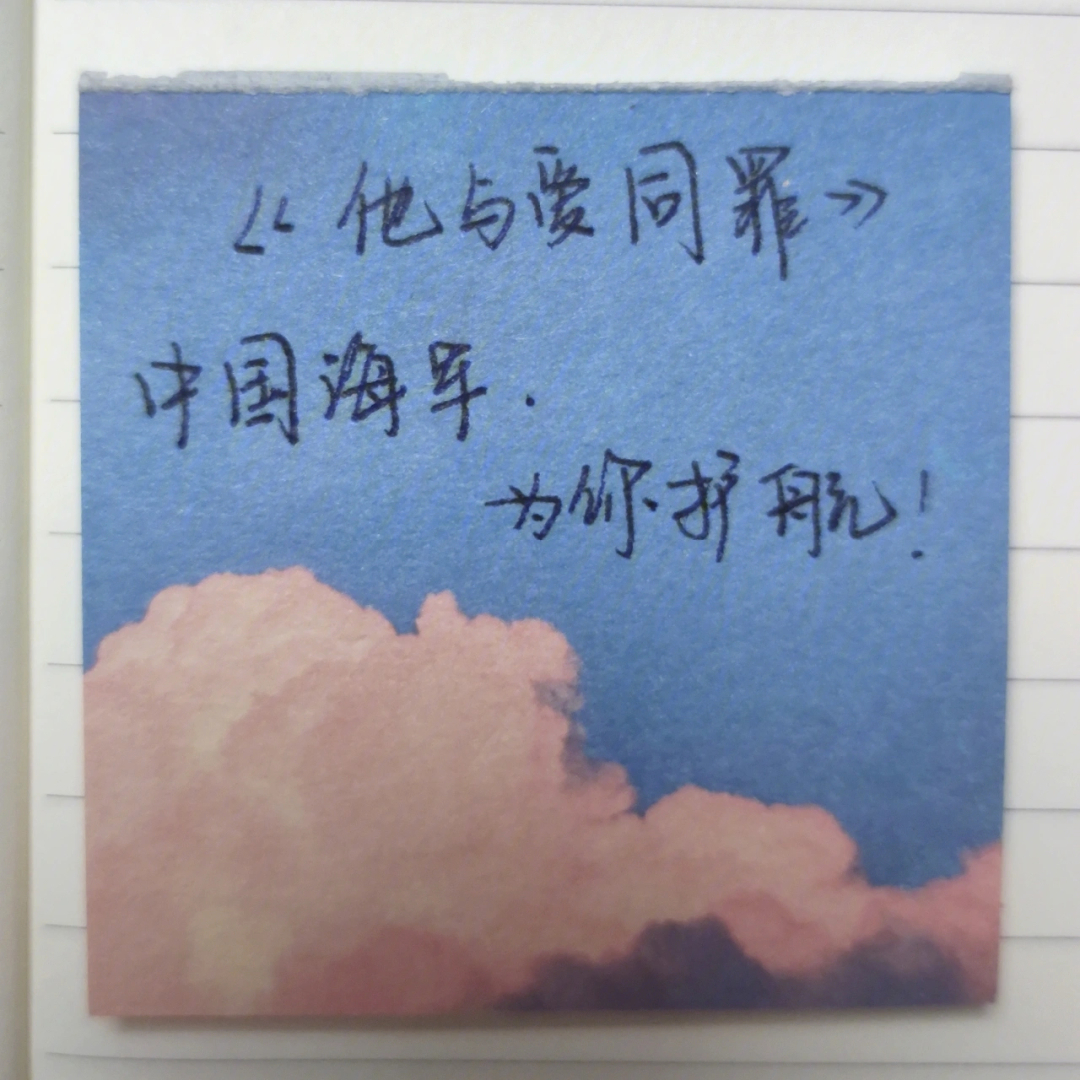 《他与爱同罪》
中国海军.
为你护航!